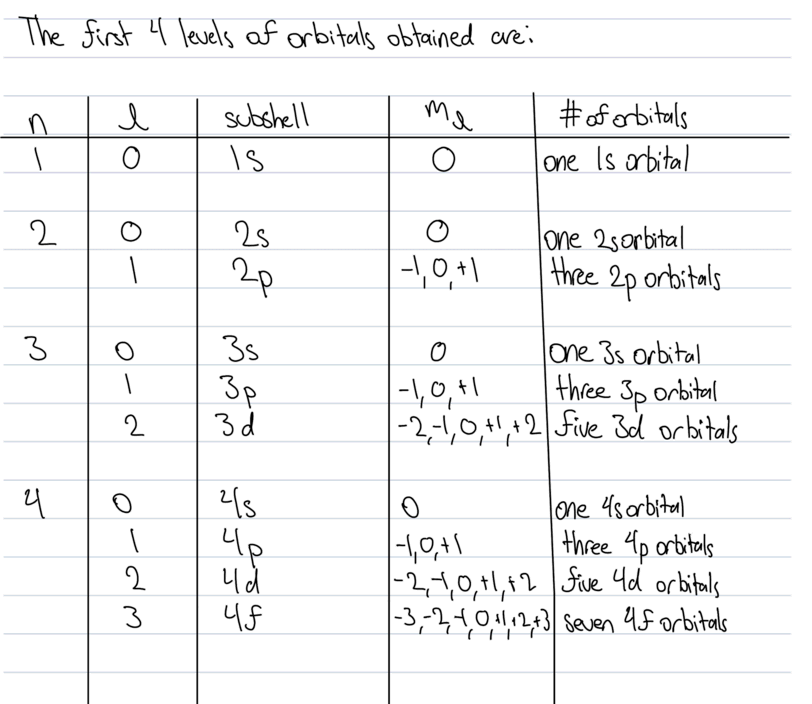 The first 4 levels of orbitals obtained are:
n l subshell ml # of orbitals
1 0 1s 0 one 1s orbital
2 0 2s 0 one 2s orbital
1 2p -1, 0, +1 three 2p orbitals
3 0 3s 0 one 3s orbital
1 3p -1, 0, +1 three 3p orbital
2 3d -2, -1, 0, +1, +2 five 3d orbitals
4 0 4s 0 one 4s orbital
1 4p -1, 0, +1 three 4p orbitals
2 4d -2, -1, 0, +1, +2 five 4d orbitals
3 4f -3, -2, -1, 0, +1, +2, +3 seven 4f orbitals